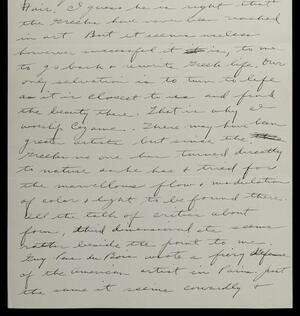 Fair, I guess he is right that
the Greeks have never been reached
in art. But it seems useless
however successful it is, to me
to go back & rewrite Greek life. Our
only salvation is to turn to life
as it is closest to us and find
the beauty there. That is why I
worship Cezanne. There may have been
greater artists but since the
Greeks no one has turned directly
to nature as he has & tried for
the marvellous flow & modulation
of color & light to be found there.
All the talk of critics about
form, third dimensional etc seems
rather beside the point to me.
Guy Pene du Bois wrote a fiery defense
of the American artist in Paris, but
the same it seems cowardly &